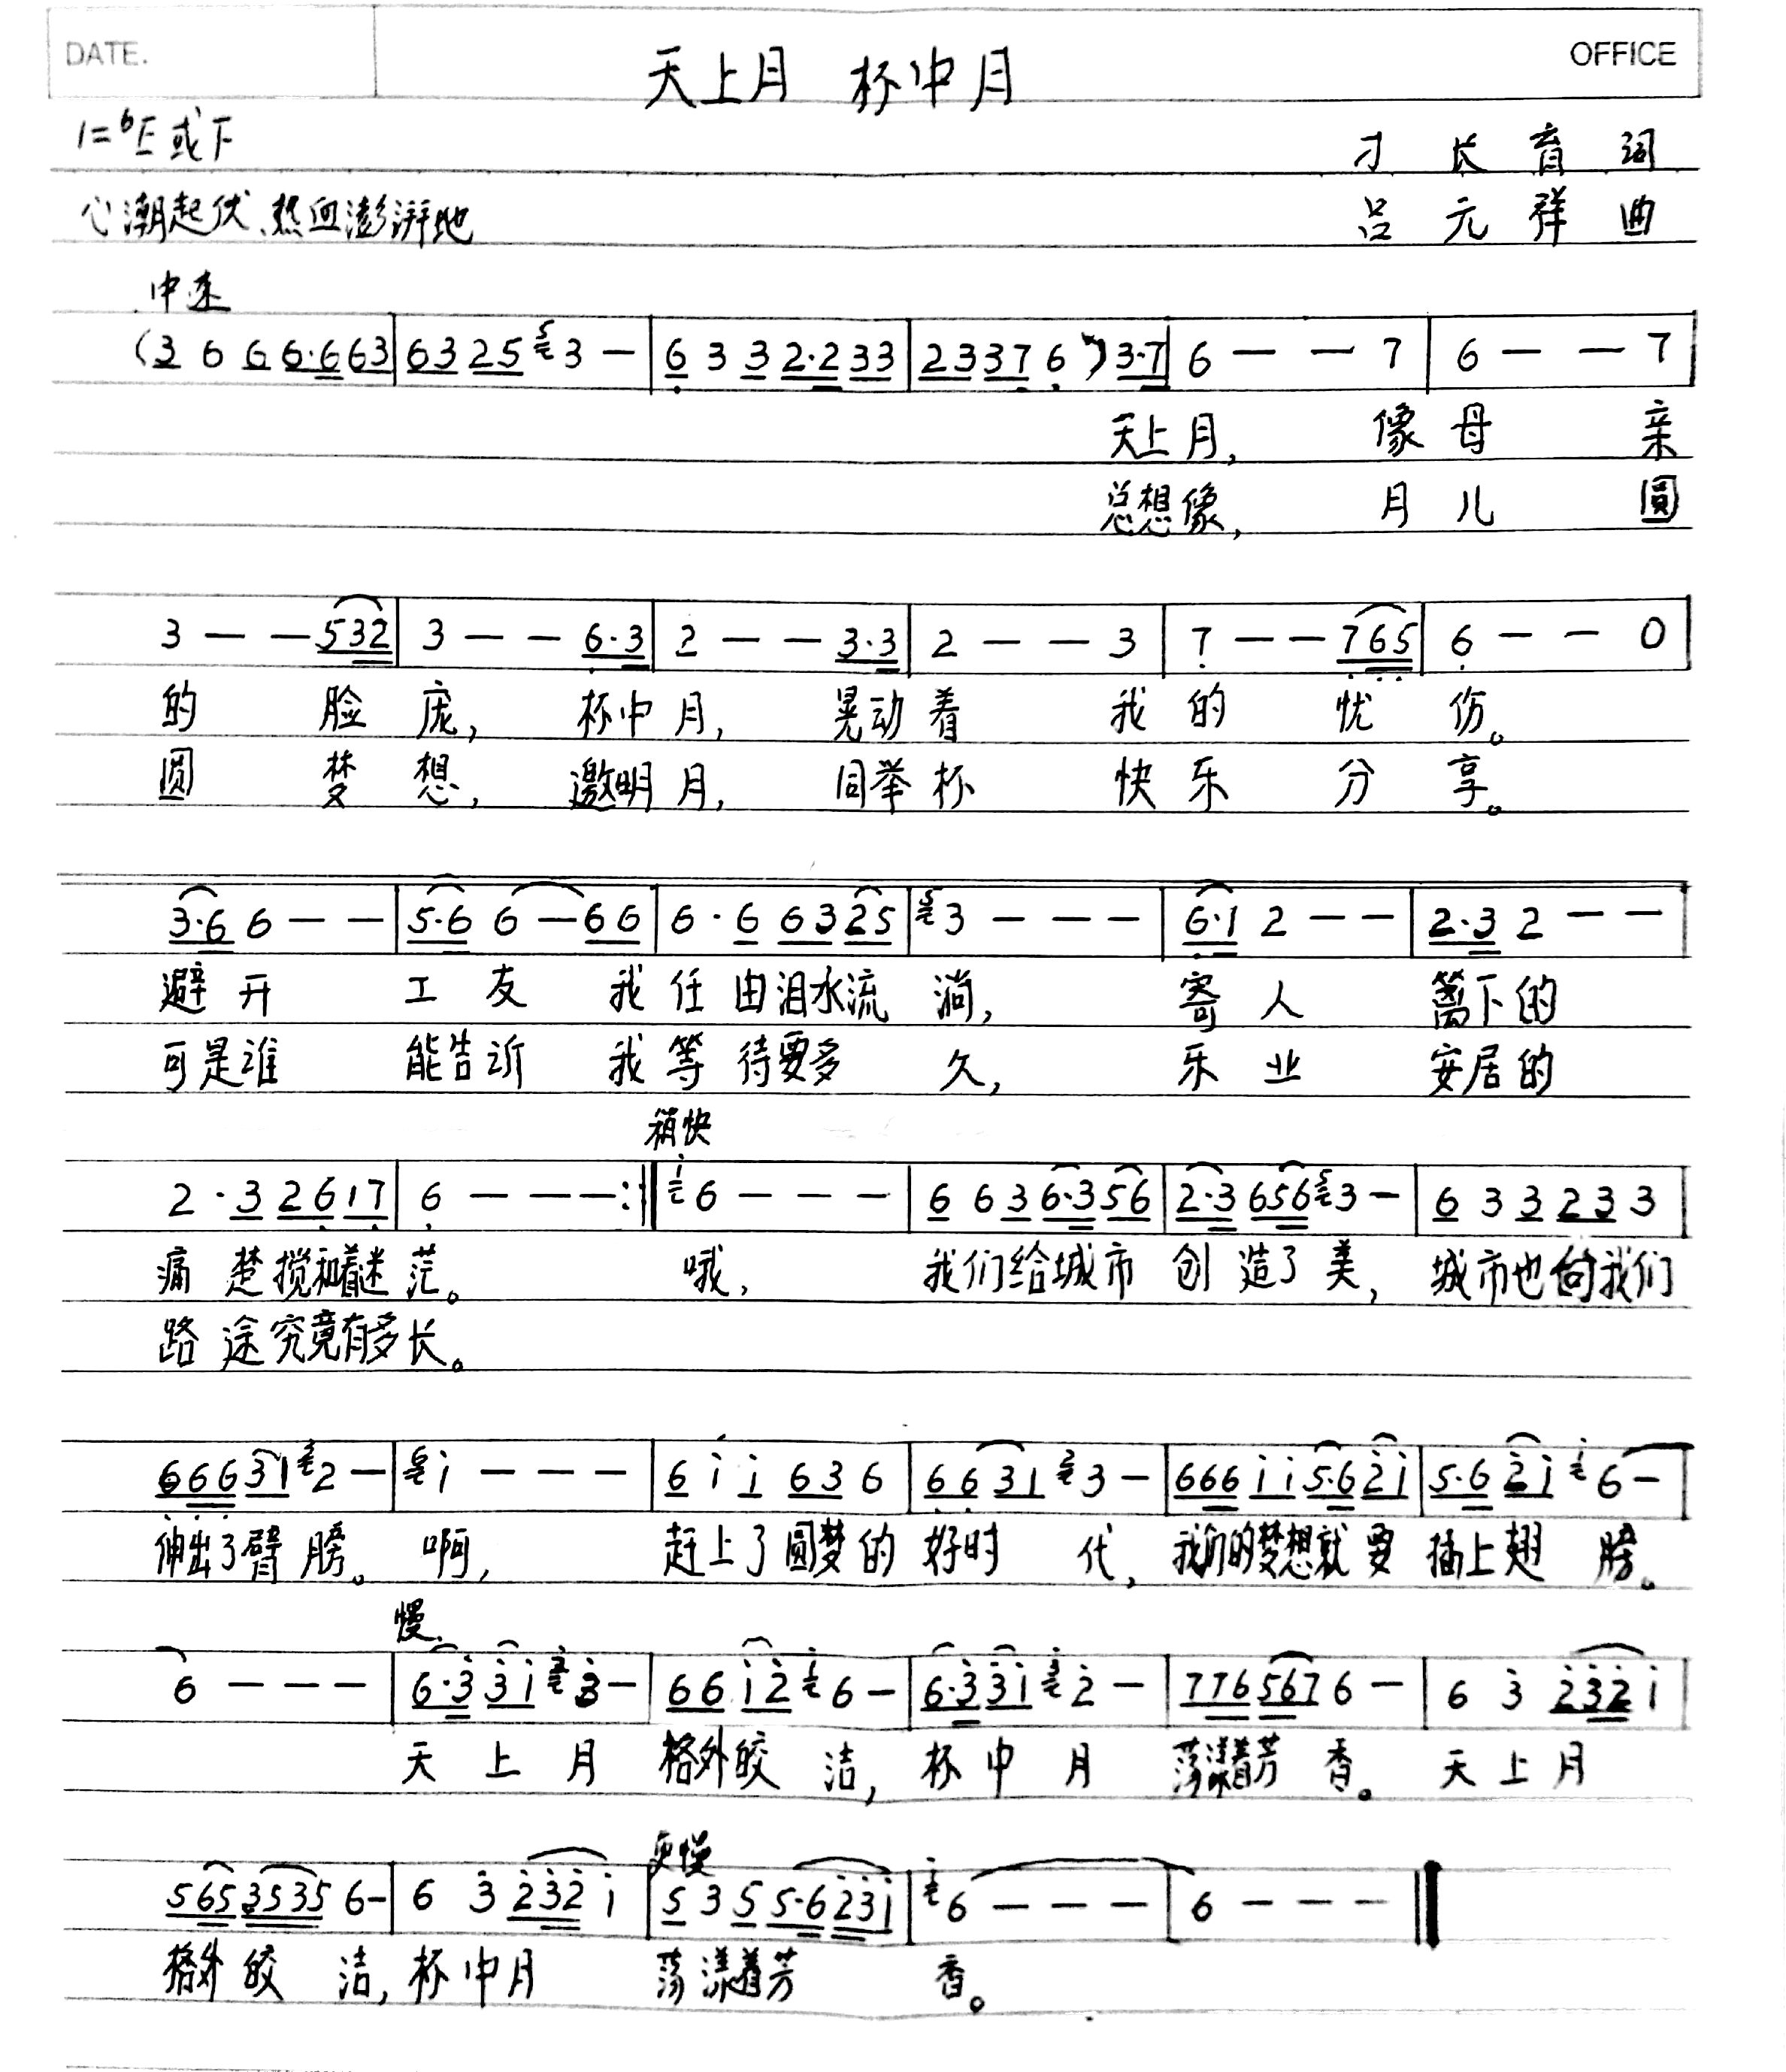 DATE.
天上月 杯中月
OFFICE
1=ᵇE或F
刁长育 词
心潮起伏、热血澎湃地
吕元祥 曲
中速
(3 6 6 6·663|6325 5 3 —|6 3 3 2·233|2337 6 ) 3·7|6 — — 7|6 — — 7|
天上月, 像母亲
总想像, 月儿圆
3 — — 532|3 — — 6·3|2 — — 3·3|2 — — 3|7 — — 765|6 — — 0|
的脸庞, 杯中月, 晃动着 我的忧伤。
圆梦想, 邀明月, 同举杯 快乐分享。
3·6 6 — —|5·6 6 — 66|6 · 6 6325|5 3 — — —|6·1 2 — —|2·3 2 — —|
避开 工友 我任由泪水流淌, 寄人 篱下的
可是谁 能告诉 我等待要多久, 乐业 安居的
稍快
2 · 3 2617|6 — — — :‖ i 6 — — —|6 6 3 6·356|2·3 656 5 3 —|6 3 3 2 3 3|
痛楚搅和着迷茫。 哦, 我们给城市 创造了美, 城市也向我们
路途究竟有多长。
66631 3 2 —|6 i — — —|6 i i 63 6|6631 2 3 —|666 i i 5·6 2̇i|5·6 2̇i i 6 —|
伸出了臂膀。 啊, 赶上了圆梦的 好时代, 我们的梦想就要 插上翅膀。
慢.
6 — — —|6·3̇ 3̇i 2̇ 3̇ —|66 i2̇ i 6 —|6·3̇ 3̇i 3̇ 2̇ —|776 567 6 —|6 3̇ 2̇3̇2̇ i|
天上月 格外皎洁, 杯中月 荡漾着芳香。 天上月
更慢
565 3535 6 —|6 3̇ 2̇3̇2̇ i|5 3 5 5·6 2̇3̇i|i 6 — — —|6 — — —‖
格外皎洁, 杯中月 荡漾着芳香。